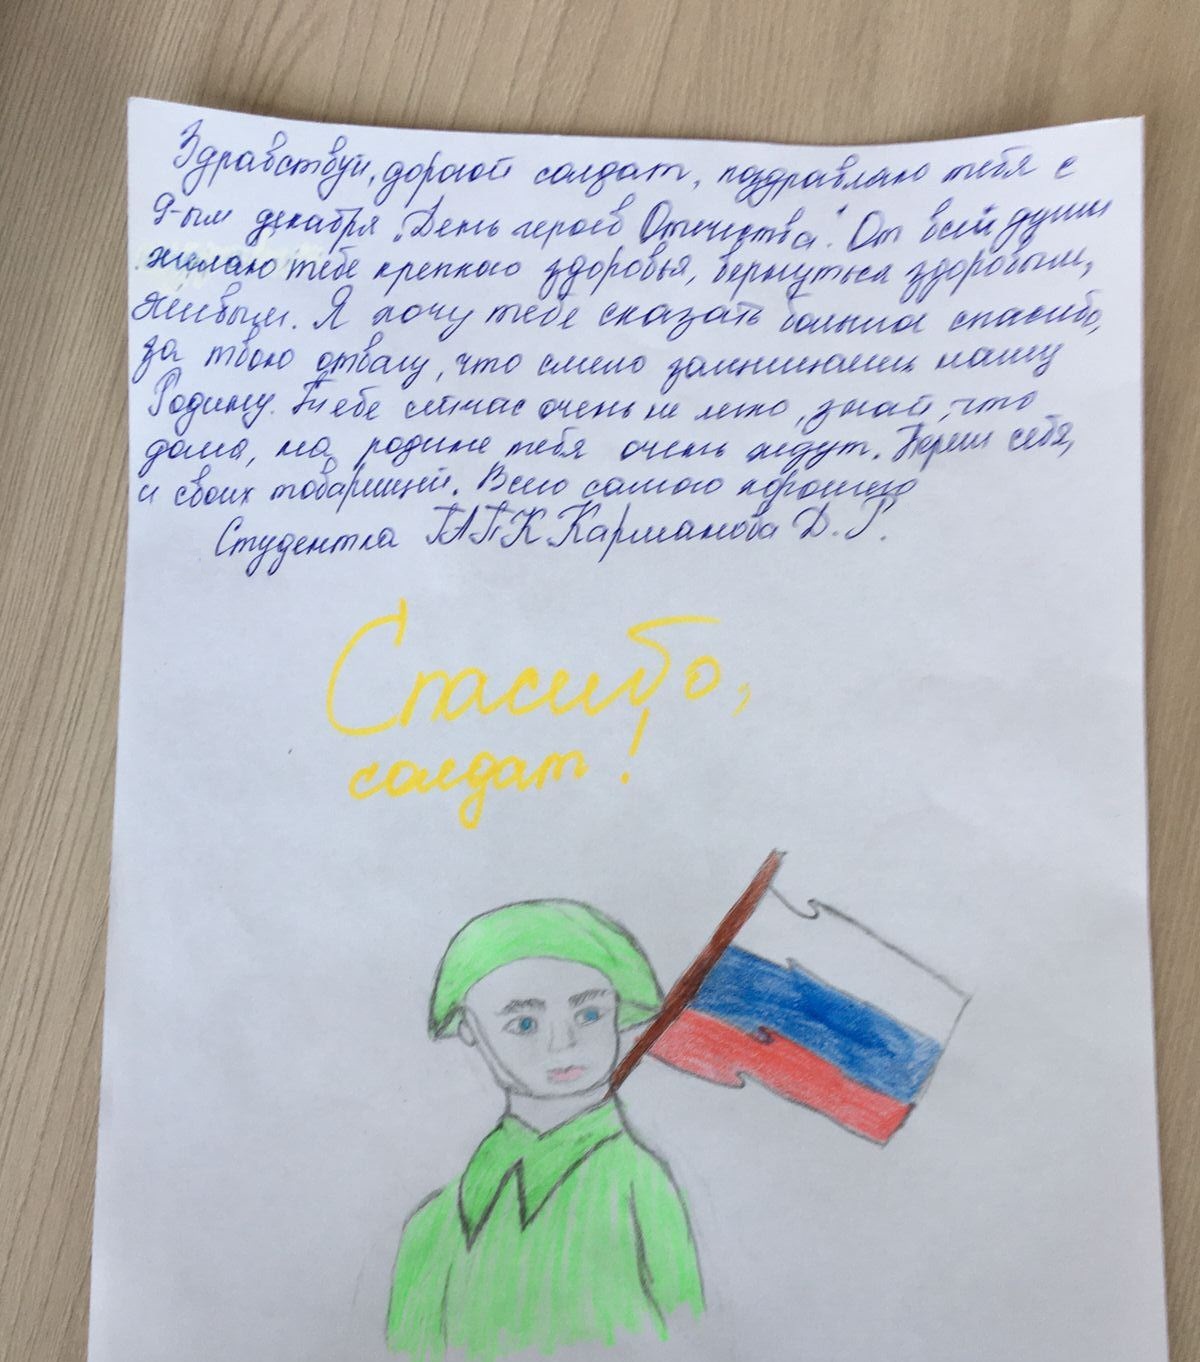 Здравствуй, дорогой солдат, поздравляю тебя с
9-ым декабря „День героев Отечества". От всей души
желаю тебе крепкого здоровья, вернуться здоровым,
живым. Я хочу тебе сказать большое спасибо,
за твою отвагу, что смело защищаешь нашу
Родину. Тебе сейчас очень не легко, знай, что
дома, на родине тебя очень ждут. Береги себя,
и своих товарищей. Всего самого хорошего
Студентка ГАПК Карманова Д. Р.
Спасибо,
солдат!